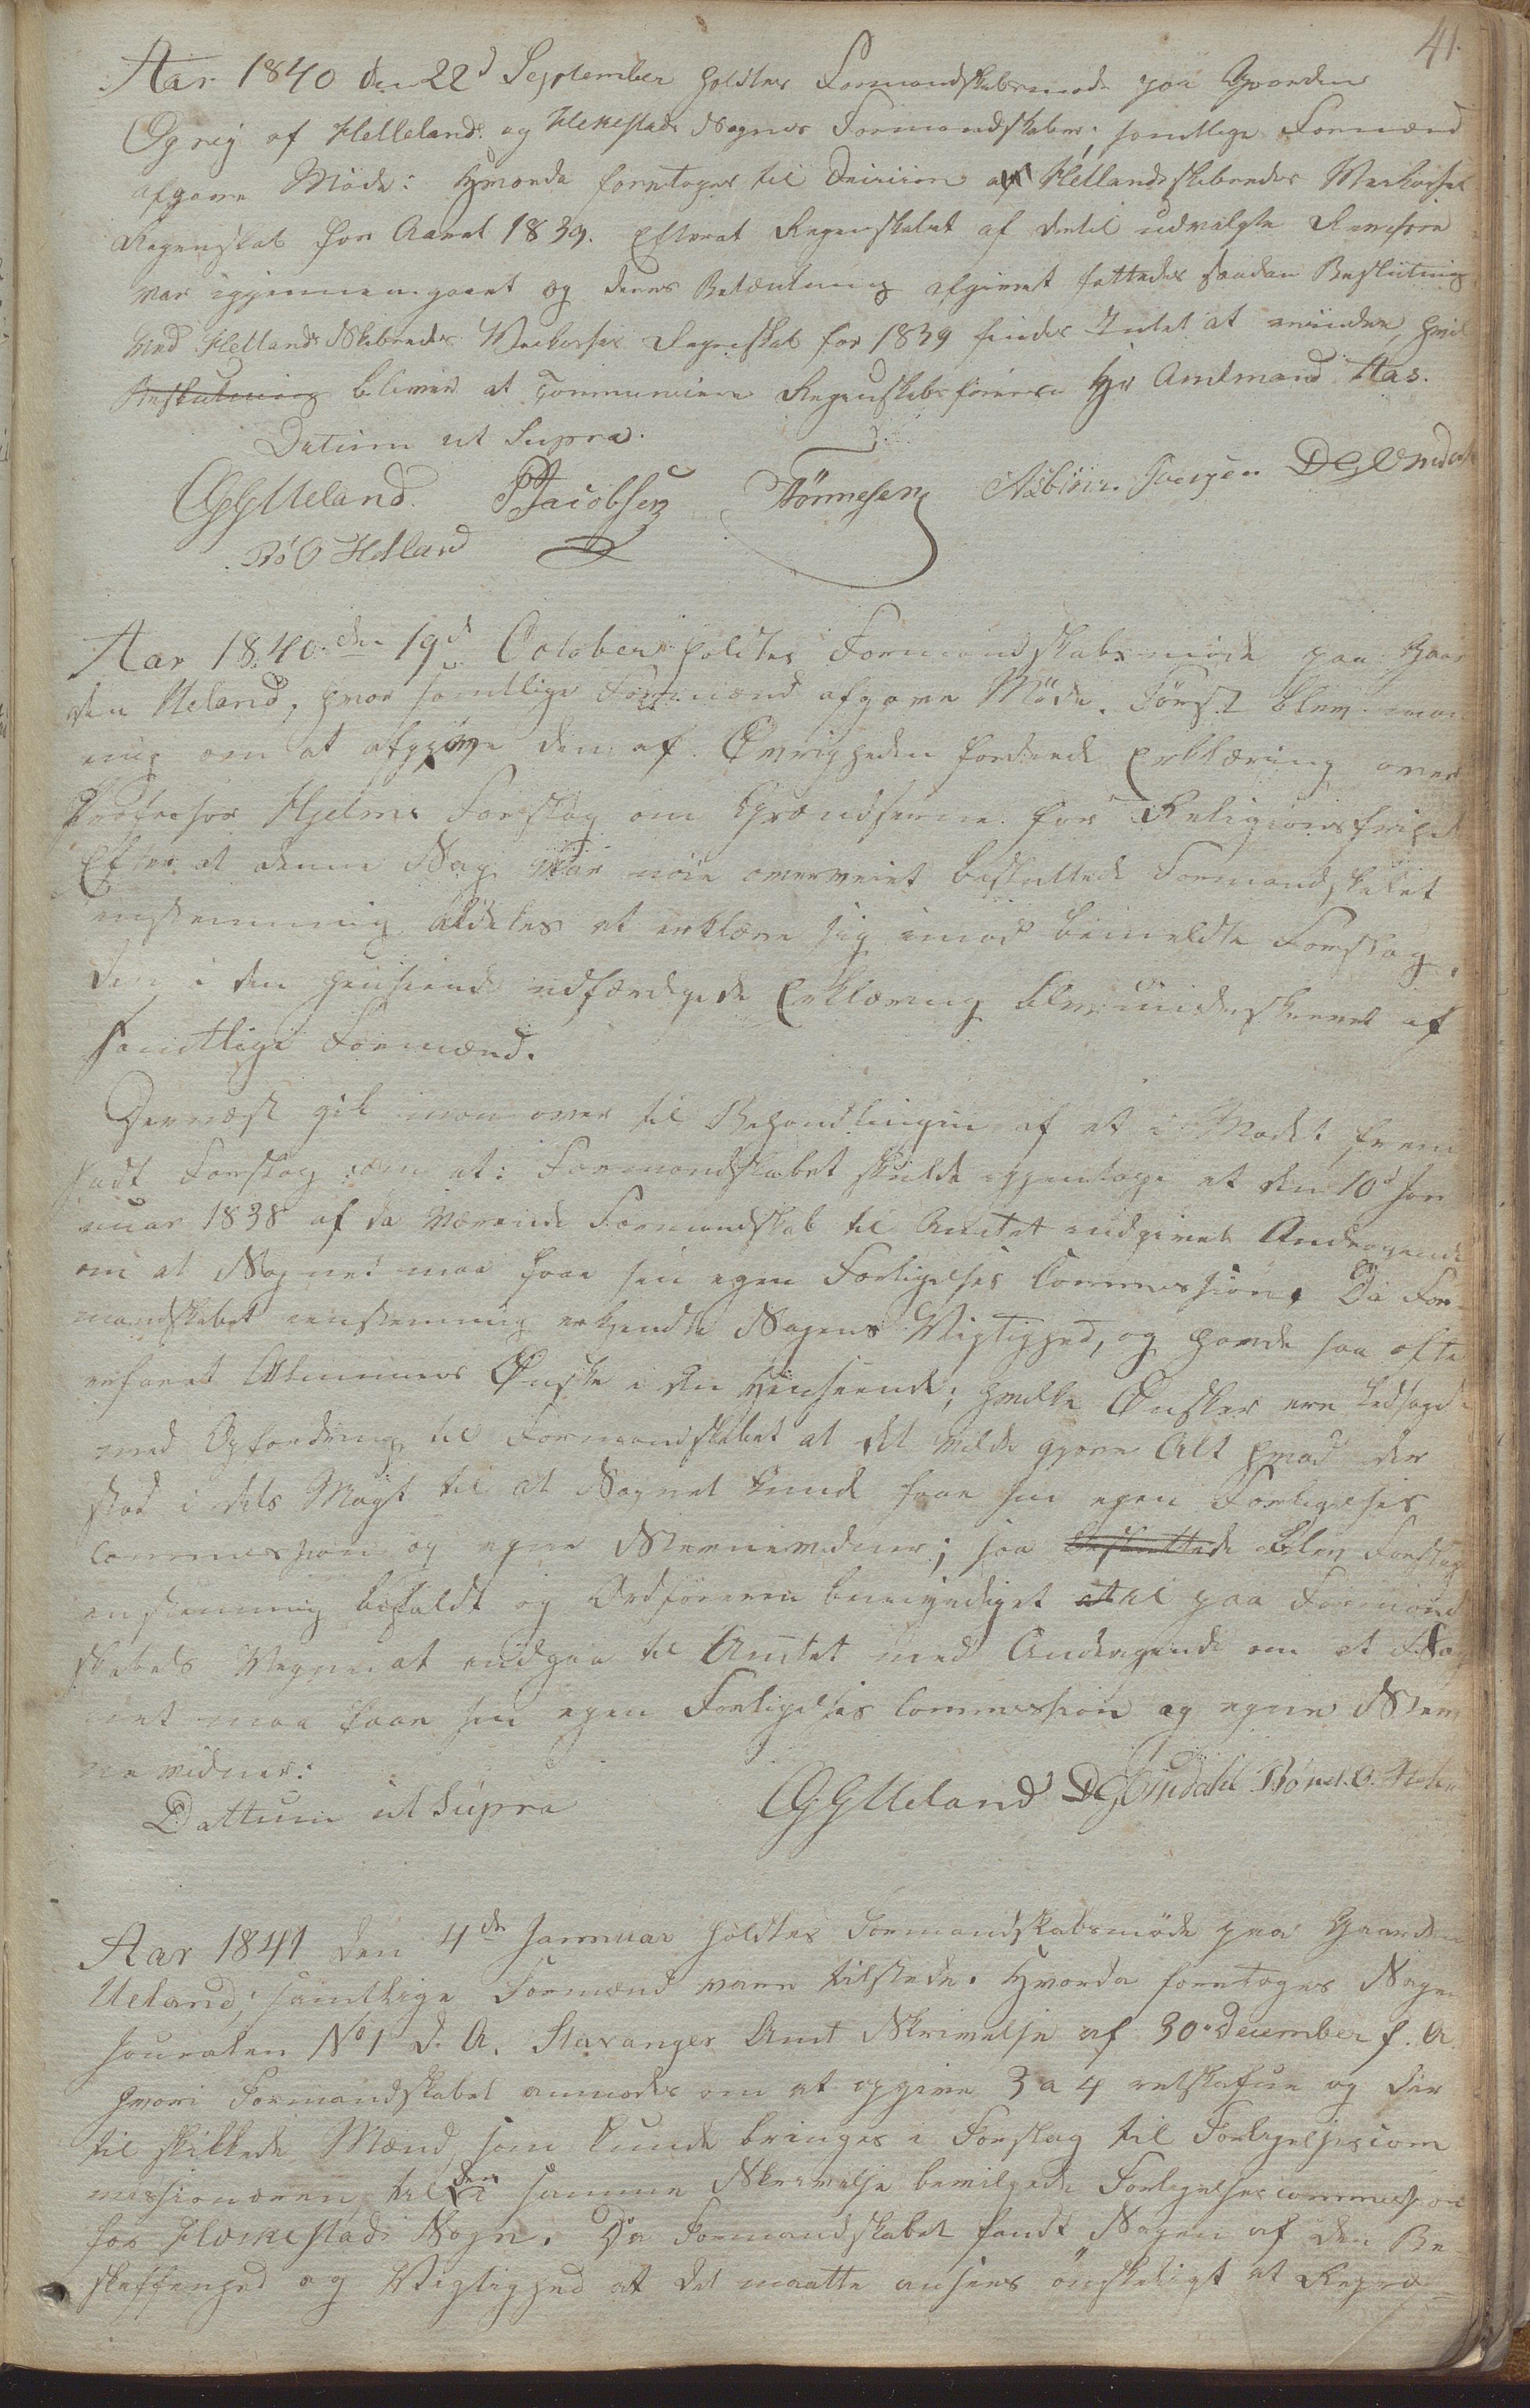 41.
Aar 1840 den 22d September holdtes Formandskabsmøde paa Gaarden
Øgrey af Helleland og Heskestads Sognes Formandskaber; samtlige Formænd
afgave Møde: Hvorda foretoges til Decision af Hetlandsskibredes Veikasses
Regenskab for Aaret 1839. Efterat Regenskabet af dertil udvalgte Revisore
var igjennemgaaet og deres Betænkning afgivet fattedes saadan Beslutning
Ved Hetlands Skibredes Veikasses Regnskab for 1839 findes Intet at erindre, hvil
Beslutning bliver at communicere Regenskabsføreren Hr Amtmand Aas.
Datum ut Supra.
OGUeland. PJacobsen Tønnesen Asbiørn DGOmdal
Bó O Hetland
Aar 1840 den 19d October holdtes Formandskabsmøde paa Gaar
den Ueland, hvor samtlige Formænd afgave Møde. Først blev man
enig om at afgive den af Øvrigheden fordrede Erklæring over
Profesor Hjelms Forslag om Grændserne for Religionsfrihed
Efter at denne Sag var nøie overveiet besluttede Formandskabet
enstemmig aldeles at erklære sig imod bemeldte Forslag.
Den i den henseende udfærdigede Erklæring blev underskrevet af
samtlige Formænd.
Dernæst gik man over til Behandlingen af et i Mødet frem
sadt Forslag om at: Formandskabet skulde igjentage et den 10d Jan
nuar 1838 af da værende Formandskab til Amtet indgivet Andragende
om at Sognet maa faae sin egen Forligelses Commission. Da For-
mandskabet eenstemmig erkjendte Sagens Vigtighed, og havde saa ofte
erfaret Almuens Ønske i den Henseende; hvilke Ønsker ere ledsagede
med Opfordring til Formandskabet at det vilde gjøre Alt hvad der
stod i dets Magt til at Sognet kunde faae sin egen Forligelses
Commission og egne Stevnevidner; saa besluttede blev Forslag
enstemmig bifaldt og Ordføreren bemyndiget til paa Formand
skabets Vegne at indgaa til Amtet med Andragende om at Sog
net maa faae sin egen Forligelses Commission og egne Stev
nevidner:
Dattum ut Supra OGUeland DGOmdahl Bórel. O. Hetl
Aar 1841 den 4de Januar holdtes Formandskabsmøde paa Gaarden
Ueland; samtlige Formænd vare tilstede. Hvorda foretoges Sagen
Jouralen No 1 d. A. Stavanger Amt Skrivelse af 30. December f. A.
hvori Formandskabet anmodes om at opgive 3 a 4 retskafne og der
til skikkede Mænd som kunde bringes i Forslag til Forligelsescom
missionærer til den i samme Skrivelse bevilgede Forligelsescommission
for Heskestads Sogn. Da Formandskabet fandt Sagen af den Be-
skaffenhed og Vigtighed at det maatte ansees ønskeligt at Repræ-